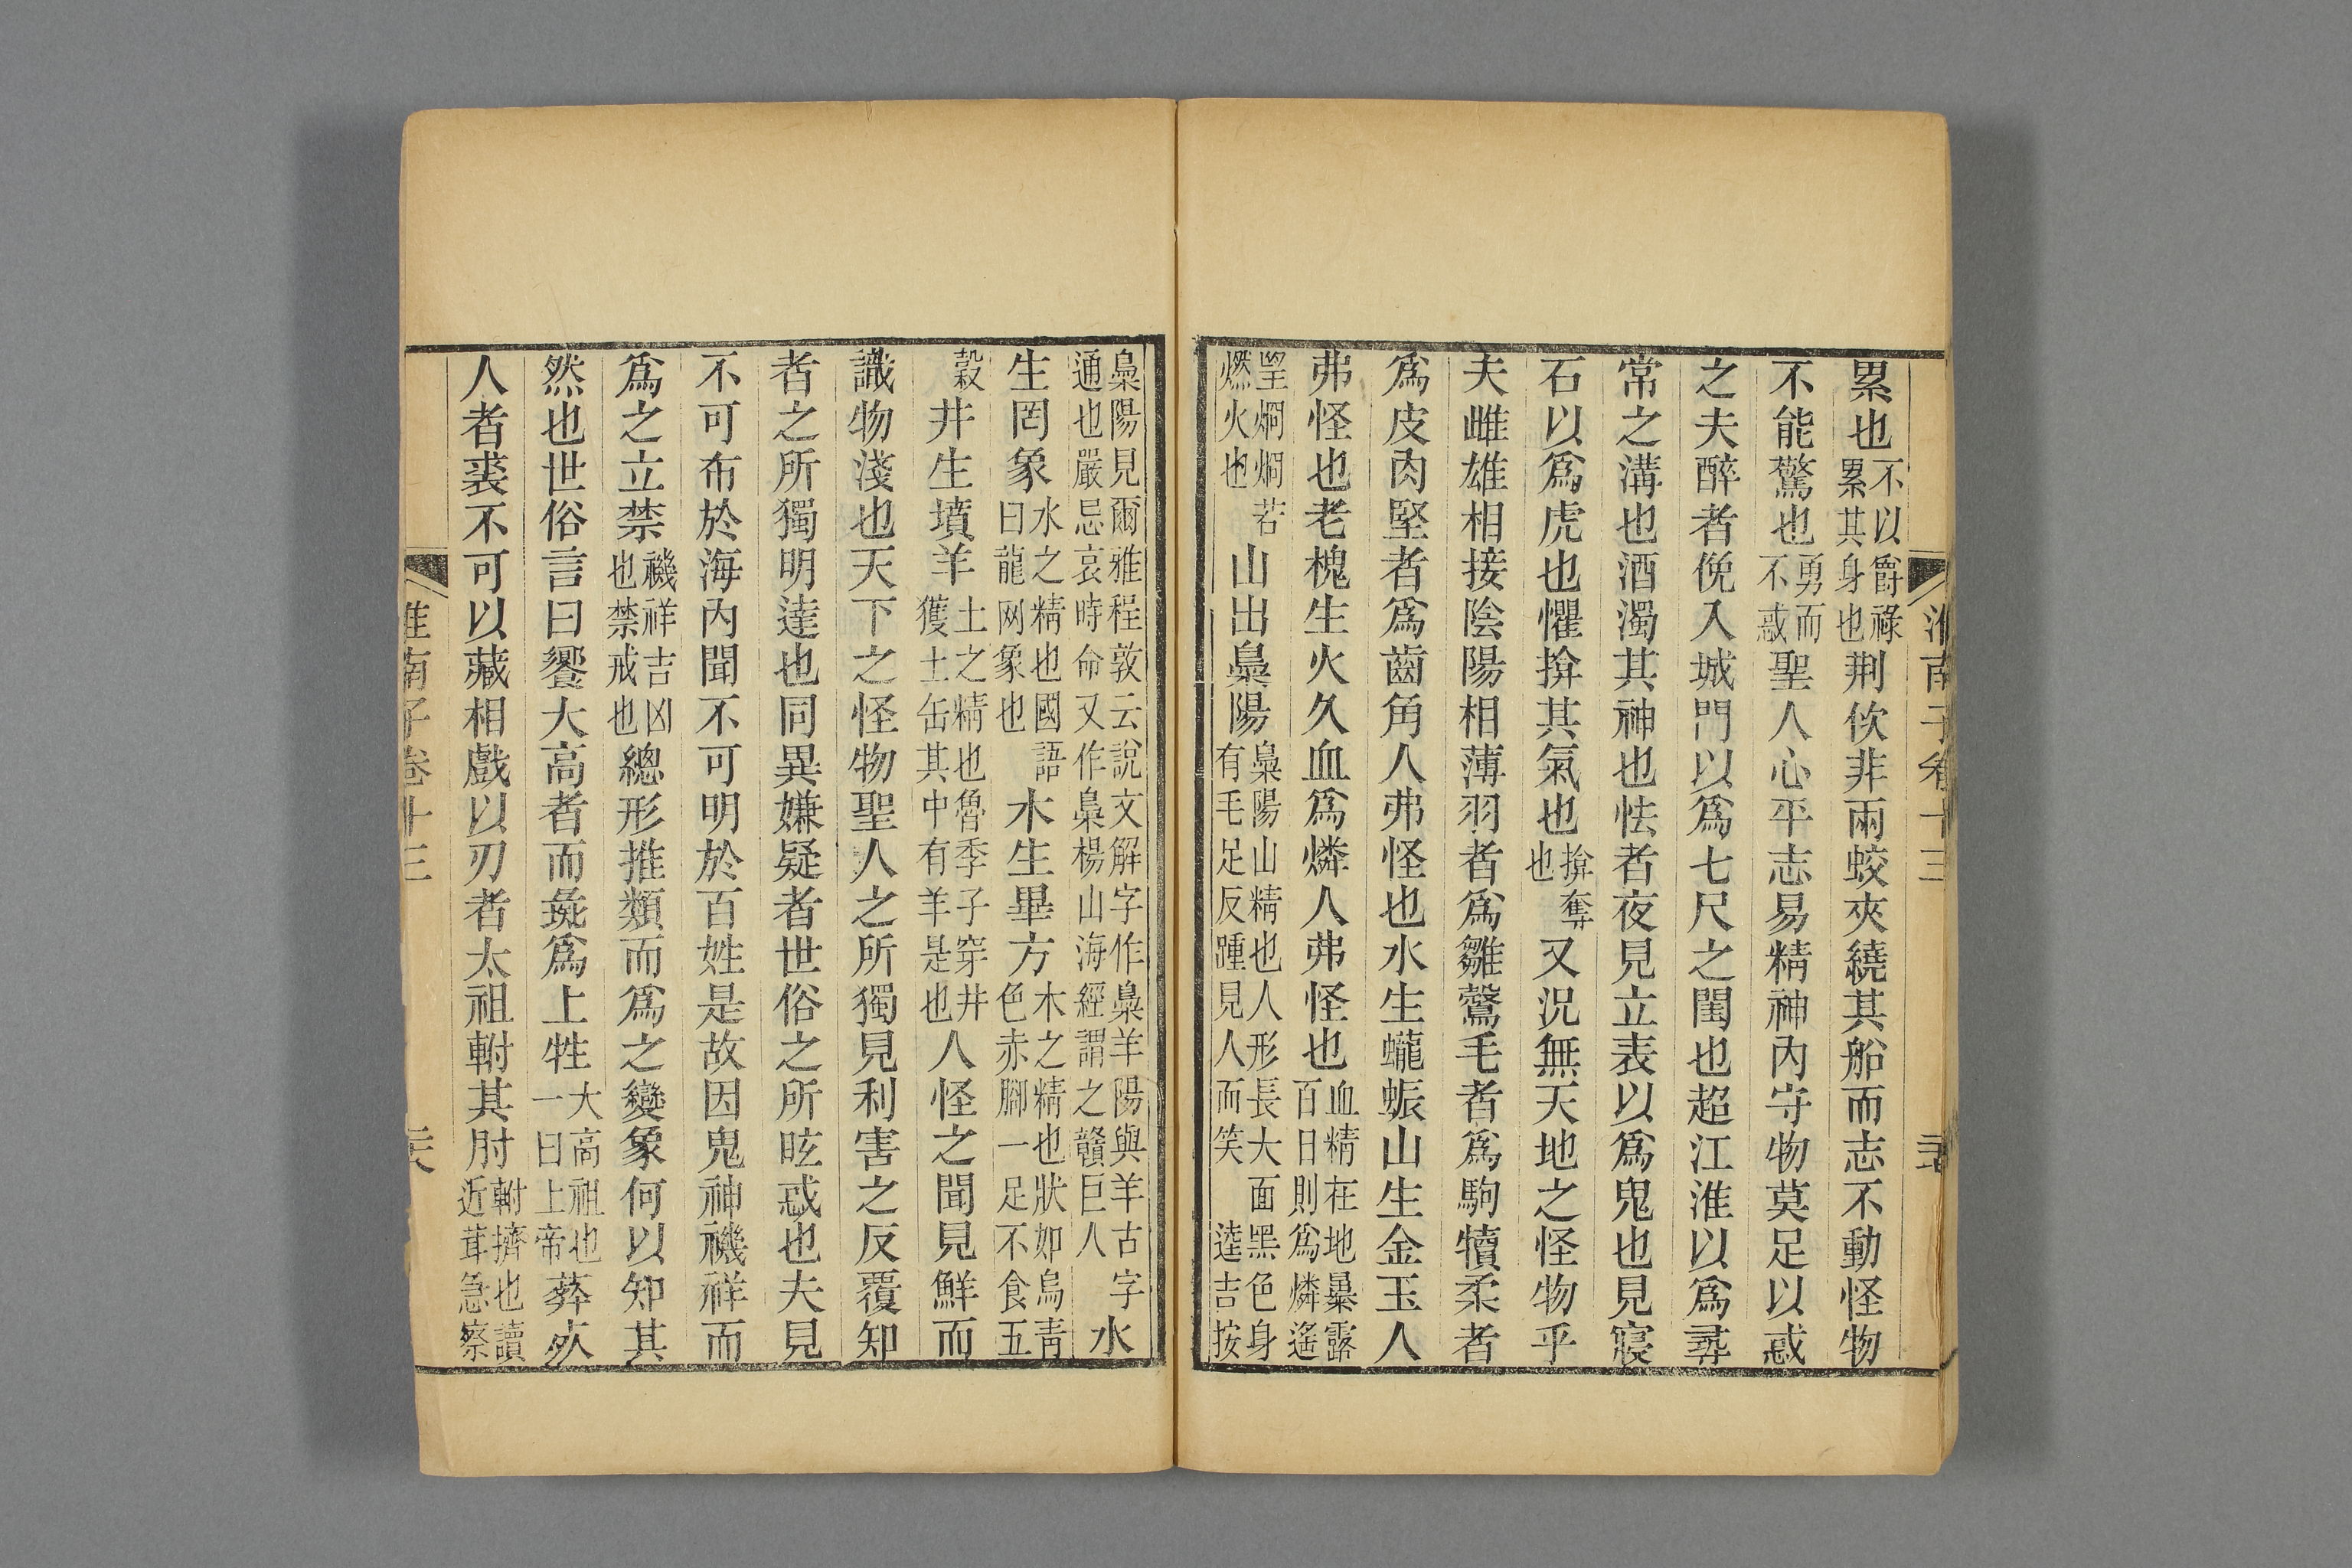 淮南子卷十三
累也不以爵祿累其身也荆佽非兩蛟夾繞其船而志不動怪物
不能驚也勇而不惑聖人心平志易精神內守物莫足以惑
之夫醉者俛入城門以爲七尺之閨也超江淮以爲尋
常之溝也酒濁其神也怯者夜見立表以爲鬼也見寢
石以爲虎也懼揜其氣也揜奪也又況無天地之怪物乎
夫雌雄相接陰陽相薄羽者爲雛鷇毛者爲駒犢柔者
爲皮肉堅者爲齒角人弗怪也水生蠬蜄山生金玉人
弗怪也老槐生火久血爲燐人弗怪也血精在地暴露百日則爲燐遙
望炯炯若燃火也山出梟陽梟陽山精也人形長大面黑色身有毛足反踵見人而笑逵吉按
梟陽見爾雅程敦云說文解字作梟羊陽與羊古字通也嚴忌哀時命又作梟楊山海經謂之贛巨人水
生罔象水之精也國語曰龍网象也木生畢方木之精也狀如烏靑色赤腳一足不食五
穀井生墳羊土之精也魯季子穿井獲土缶其中有羊是也人怪之聞見鮮而
識物淺也天下之怪物聖人之所獨見利害之反覆知
者之所獨明達也同異嫌疑者世俗之所眩惑也夫見
不可布於海內聞不可明於百姓是故因鬼神禨祥而
爲之立禁禨祥吉凶也禁戒也總形推類而爲之變象何以知其
然也世俗言曰饗大高者而彘爲上牲大高祖也一曰上帝葬死
人者裘不可以藏相戲以刃者太祖軵其肘軵擠也讀近茸急察
淮南子卷十三